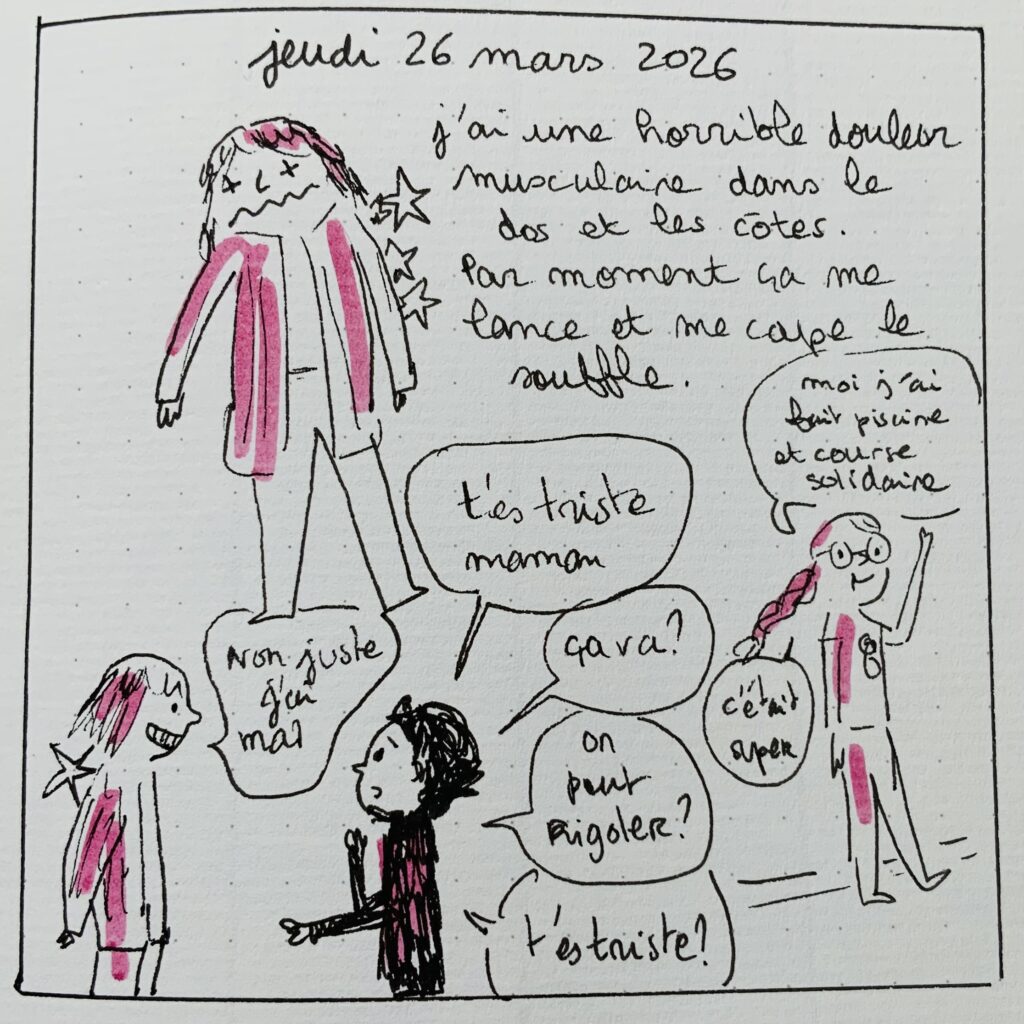 jeudi 26 mars 2026
j'ai une horrible douleur
musculaire dans le
dos et les côtes.
Par moment ça me
lance et me coupe le
souffle.
moi j'ai
fait piscine
et course
solidaire
c'était
super
t'es triste
maman
Non juste
j'ai
mal
ça va?
on
peut
Rigoler?
t'es triste?